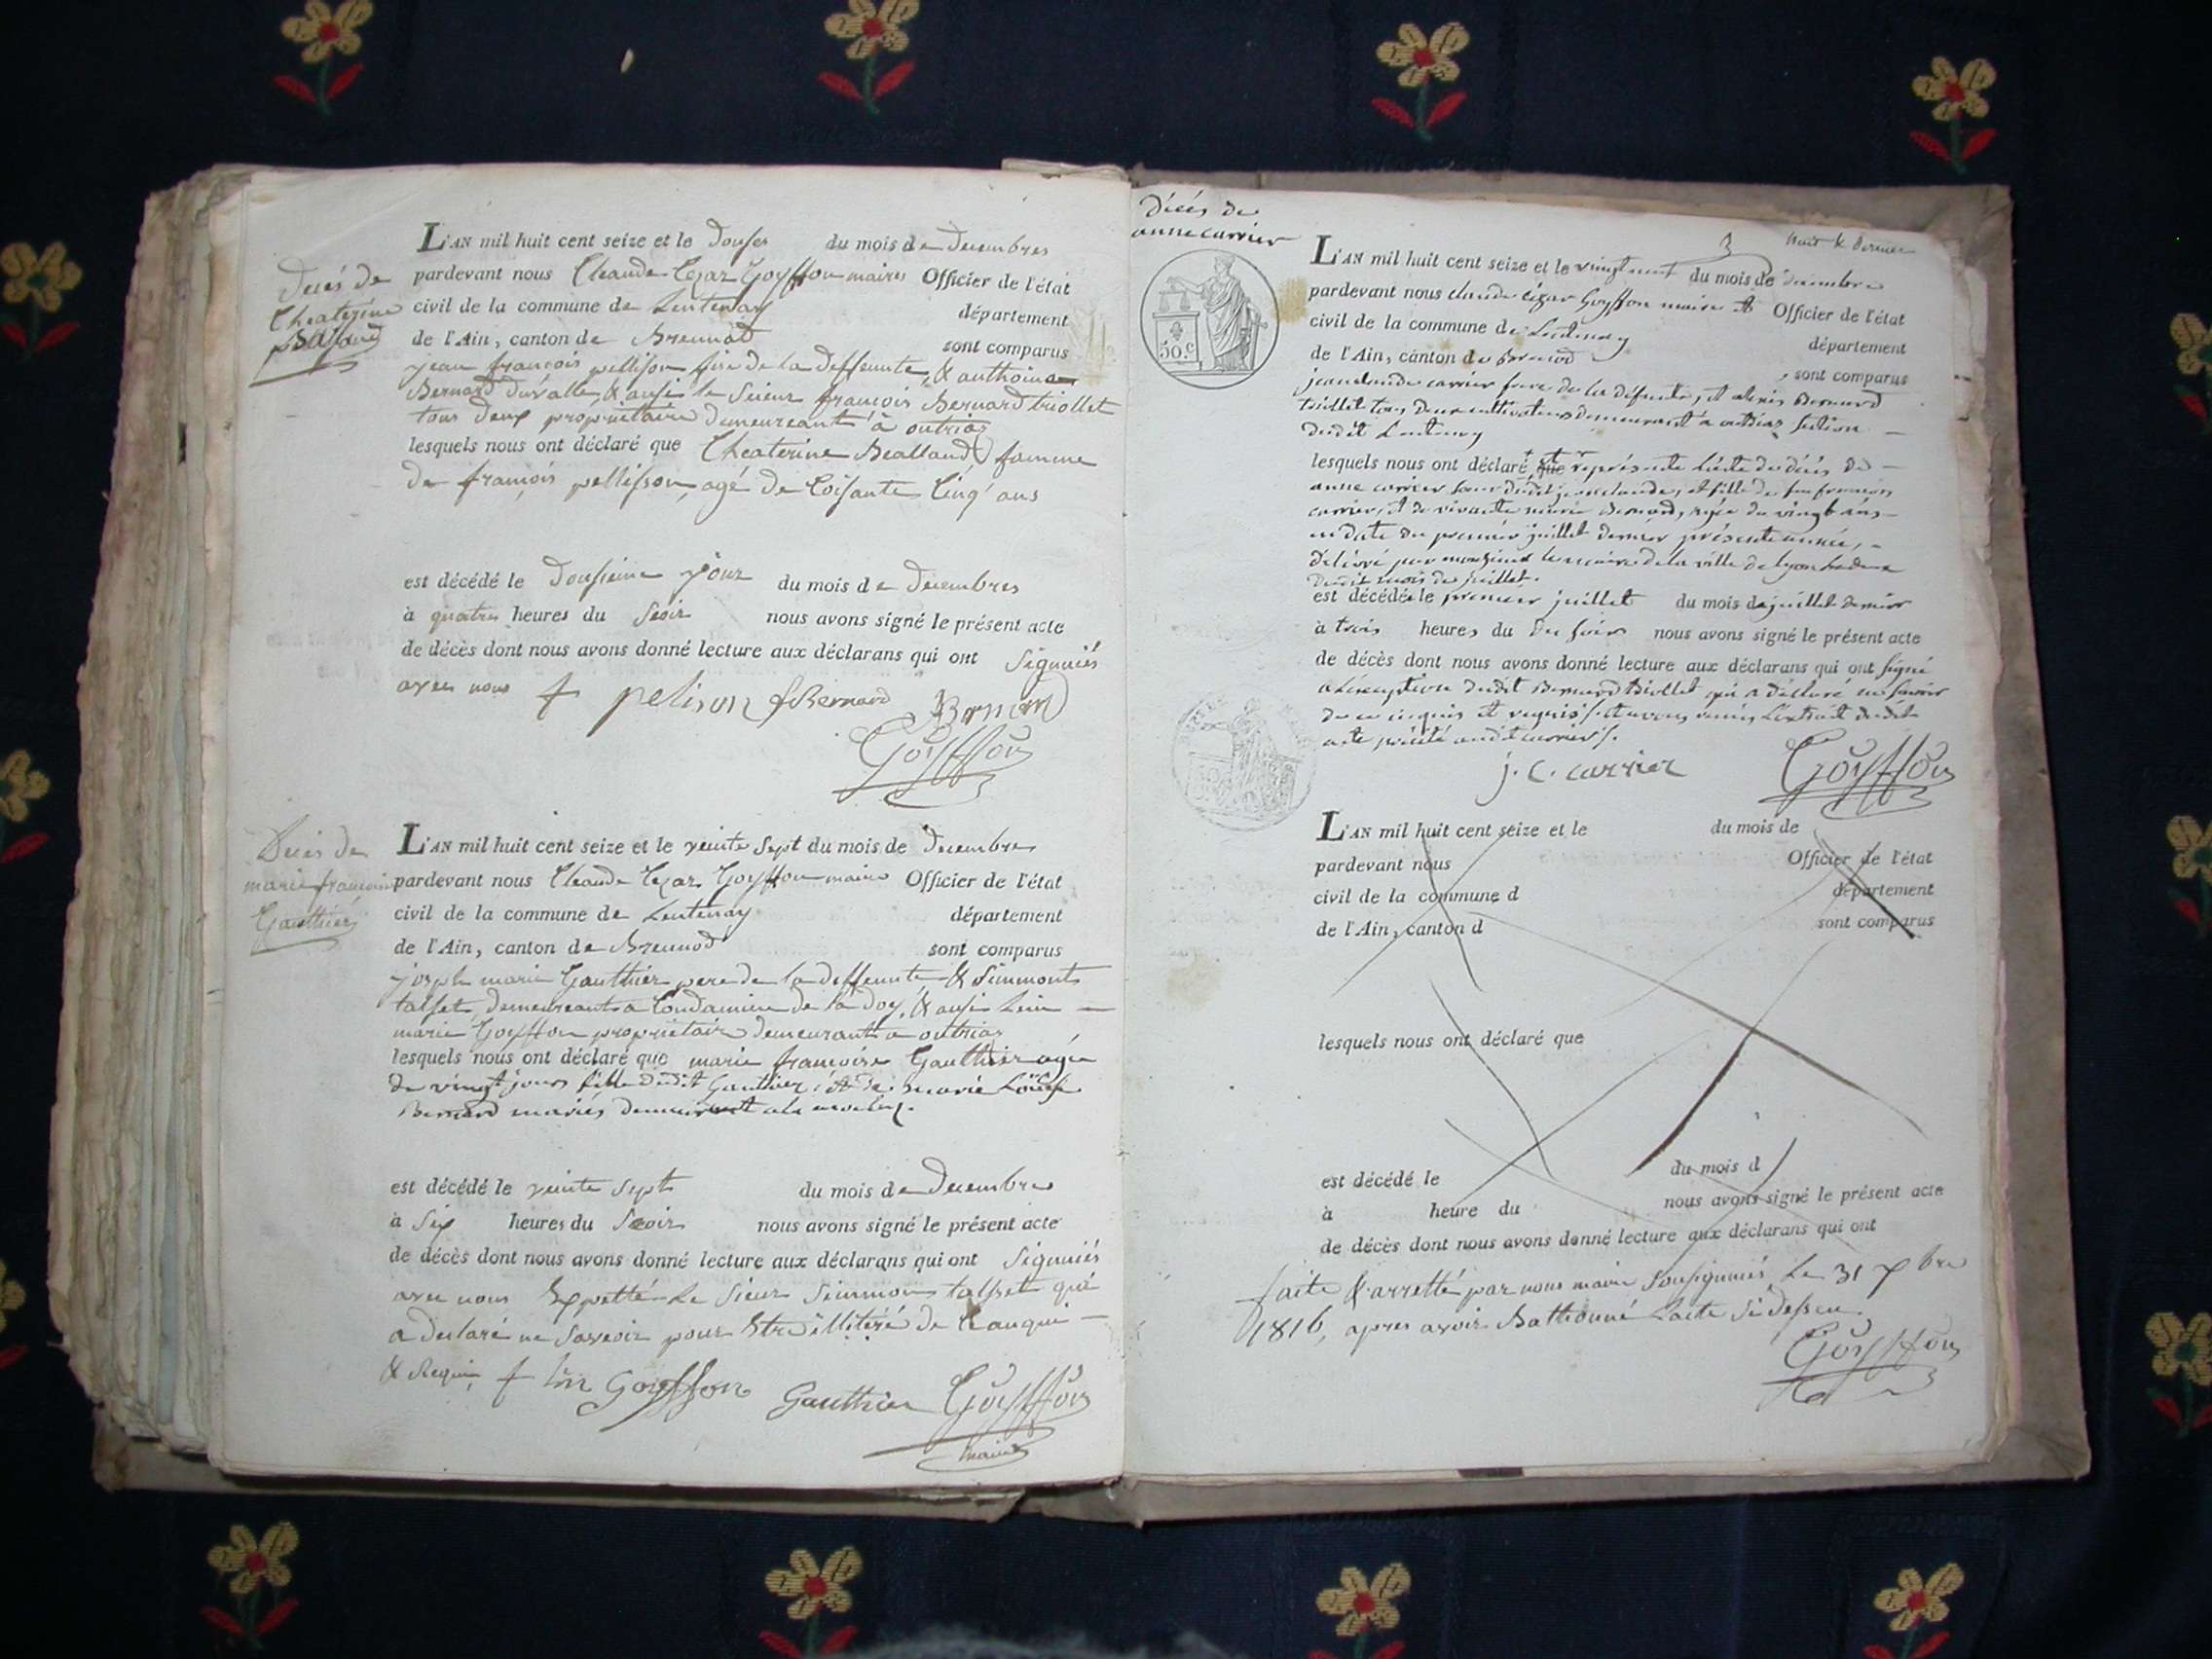 Décés de
Cheaterine
Balland
L'AN mil huit cent seize et le Douses du mois de Decembres
pardevant nous Cleaude Cezar Goyffon maires Officier de l'état
civil de la commune de Lentenay département
de l'Ain, canton de Brennod sont comparus
jean françois pellisson fire de la deffeunte, & anthoine
Bernard Duvalle, & ausi le Sieur françois Bernard triollet
tous deux propriétaire demeureant à outriaz
lesquels nous ont déclaré que Cheaterine Bealland famme
De françois pellisson, agé de Coisante Cinq ans
est décédé le Dousieme jour du mois de Decembres
à quatres heures du Seoir nous avons signé le présent acte
de décès dont nous avons donné lecture aux déclarans qui ont Signniés
avec nous pelison fBernard Bernard
Goyffon
Décés de
marie françoise
Gauthier
L'AN mil huit cent seize et le veinte Sept du mois de Decembres
pardevant nous Cleaude Cezar Goyffon maire Officier de l'état
civil de la commune de Lentenay département
de l'Ain, canton de Brennod sont comparus
joseph marie Gauthier pere de la deffeunte & Simmont
talfet, demeureant a Condamine de la doy, & ausi
marie Goyffon propriétaire demeurant a outriaz
lesquels nous ont déclaré que marie françoise Gauthier agée
De vingt jours fille dudit Gauthier et de marie Louise
Bernard mariés demeurant
est décédé le veinte Sept du mois de Decembres
à Six heures du Seoir nous avons signé le présent acte
de décès dont nous avons donné lecture aux déclarans qui ont Signniés
avec nous Expetté Le Sieur Simmon talfet qui
a declaré ne Saveoir pour Etre illitéré de
& Requis Goyffon Gauthier Goyffon
maire
Décés de
anne carrier
50 c
3
huit & dernier
L'AN mil huit cent seize et le vingt neuf du mois de décembre
pardevant nous claude cézar Goyffon maire et Officier de l'état
civil de la commune de Lentenay département
de l'Ain, canton de Brenod sont comparus
jean claude carrier frere de la défunte, et alexis Bernard
triollet tous deux cultivateurs demeurant a outriaz section
dudit Lentenay
lesquels nous ont déclaré que et représenté l'acte du décès de
anne carrier sœur dudit jean claude, et fille de feu françois
carrier, et de vivante marie Bernard, agée de vingt ans
en date du premier juillet dernier présente année,
délivré par monsieur le maire de la ville de Lyon
dudit mois de juillet.
est décédée le premier juillet du mois de juillet dernier
à trois heures du du soir nous avons signé le présent acte
de décès dont nous avons donné lecture aux déclarans qui ont signé
a L'exception dudit Bernard triollet qui a déclaré ne savoir
de ce enquis et requis et avons remis L'extrait dudit
acte précité audit carrier
j. c. carrier Goyffon
L'AN mil huit cent seize et le du mois de
pardevant nous Officier de l'état
civil de la commune d département
de l'Ain, canton d sont comparus
lesquels nous ont déclaré que
est décédé le du mois d
à heure du nous avons signé le présent acte
de décès dont nous avons donné lecture aux déclarans qui ont
faite & arretté par nous maire Sousignniés Le 31 xbre
1816, apres avoir Battonné Lacte Sidesseu.
Goyffon